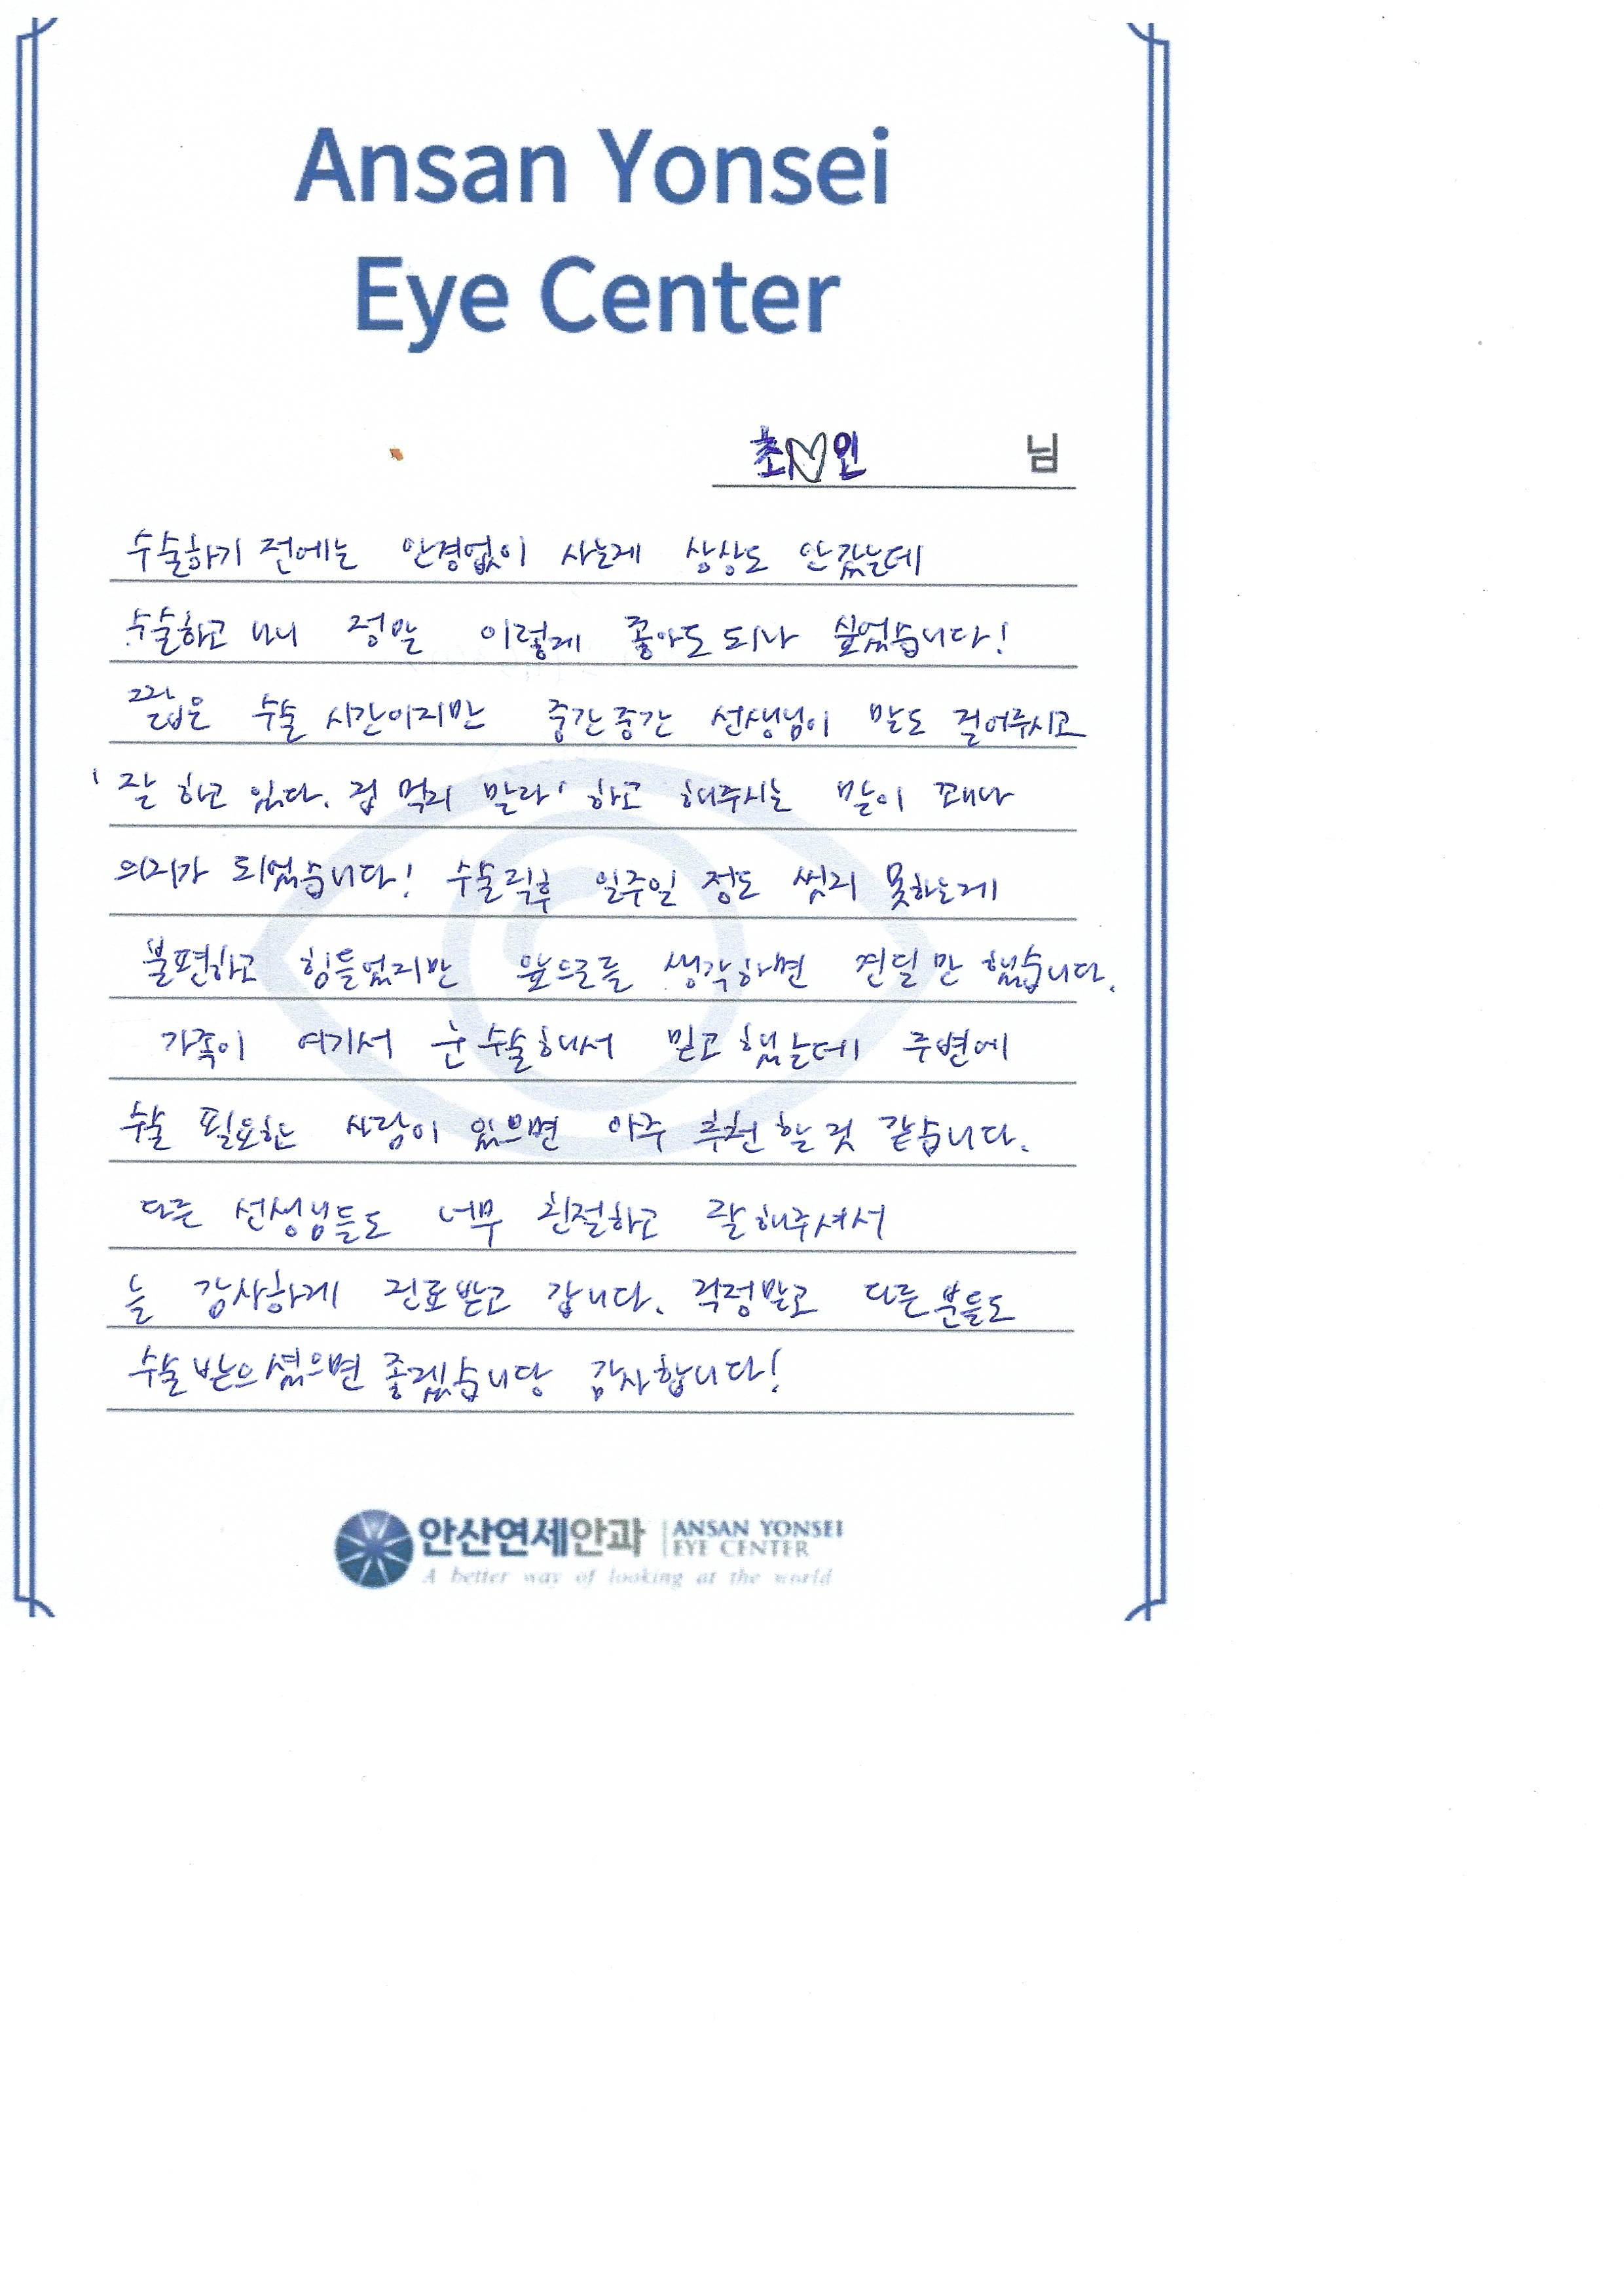 Ansan Yonsei
Eye Center
초♡인 님
수술하기 전에는 안경없이 사는게 상상도 안갔는데
수술하고 나니 정말 이렇게 좋아도 되나 싶었습니다!
짧은 수술 시간이지만 중간중간 선생님이 말도 걸어주시고
'잘 하고 있다. 겁 먹지 말라' 하고 해주시는 말이 꽤나
의지가 되었습니다! 수술직후 일주일 정도 씻지 못하는게
불편하고 힘들었지만 앞으로를 생각하면 견딜만 했습니다.
가족이 여기서 눈 수술해서 믿고 했는데 주변에
수술 필요한 사람이 있으면 아주 추천 할 것 같습니다.
다른 선생님들도 너무 친절하고 잘해주셔서
늘 감사하게 진료받고 갑니다. 걱정말고 다른분들도
수술 받으셨으면 좋겠습니당 감사합니다!
안산연세안과 ANSAN YONSEI
EYE CENTER
A better way of looking at the world